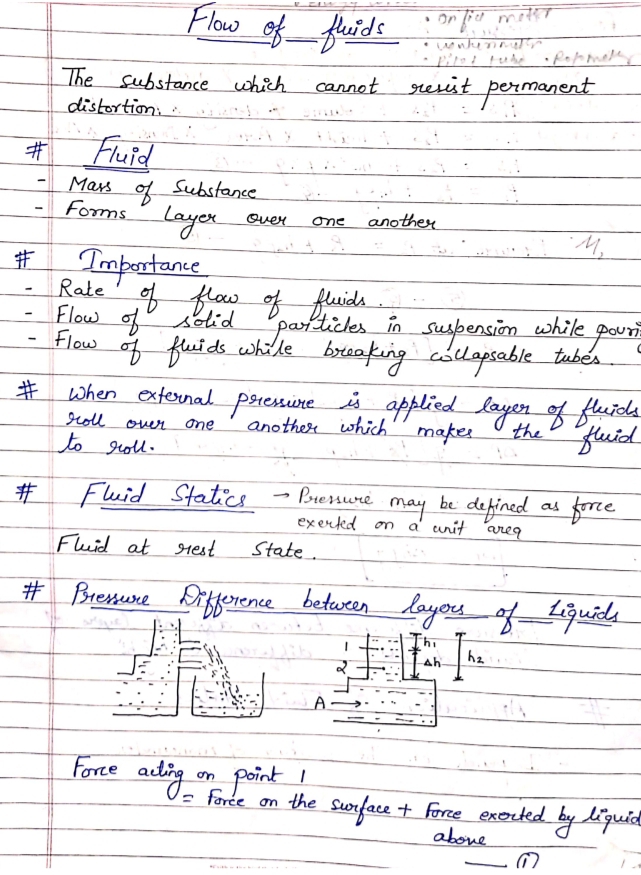 Flow of fluids
• Orific meter
• venturimeter
• Pitot tube • Rotameter
The substance which cannot resist permanent
distortion.
# Fluid
- Mass of Substance
- Forms Layer over one another
# Importance
- Rate of flow of fluids.
- Flow of solid particles in suspension while pouri
- Flow of fluids while breaking collapsable tubes.
# When external pressure is applied layer of fluids
roll over one another which makes the fluid
to roll.
# Fluid Statics → Pressure may be defined as force
exerted on a unit area
Fluid at rest State.
# Pressure Difference between layers of Liquids
1 h1
2 Δh h2
A
Force acting on point 1
= Force on the surface + Force exorted by liquid
above
— (1)